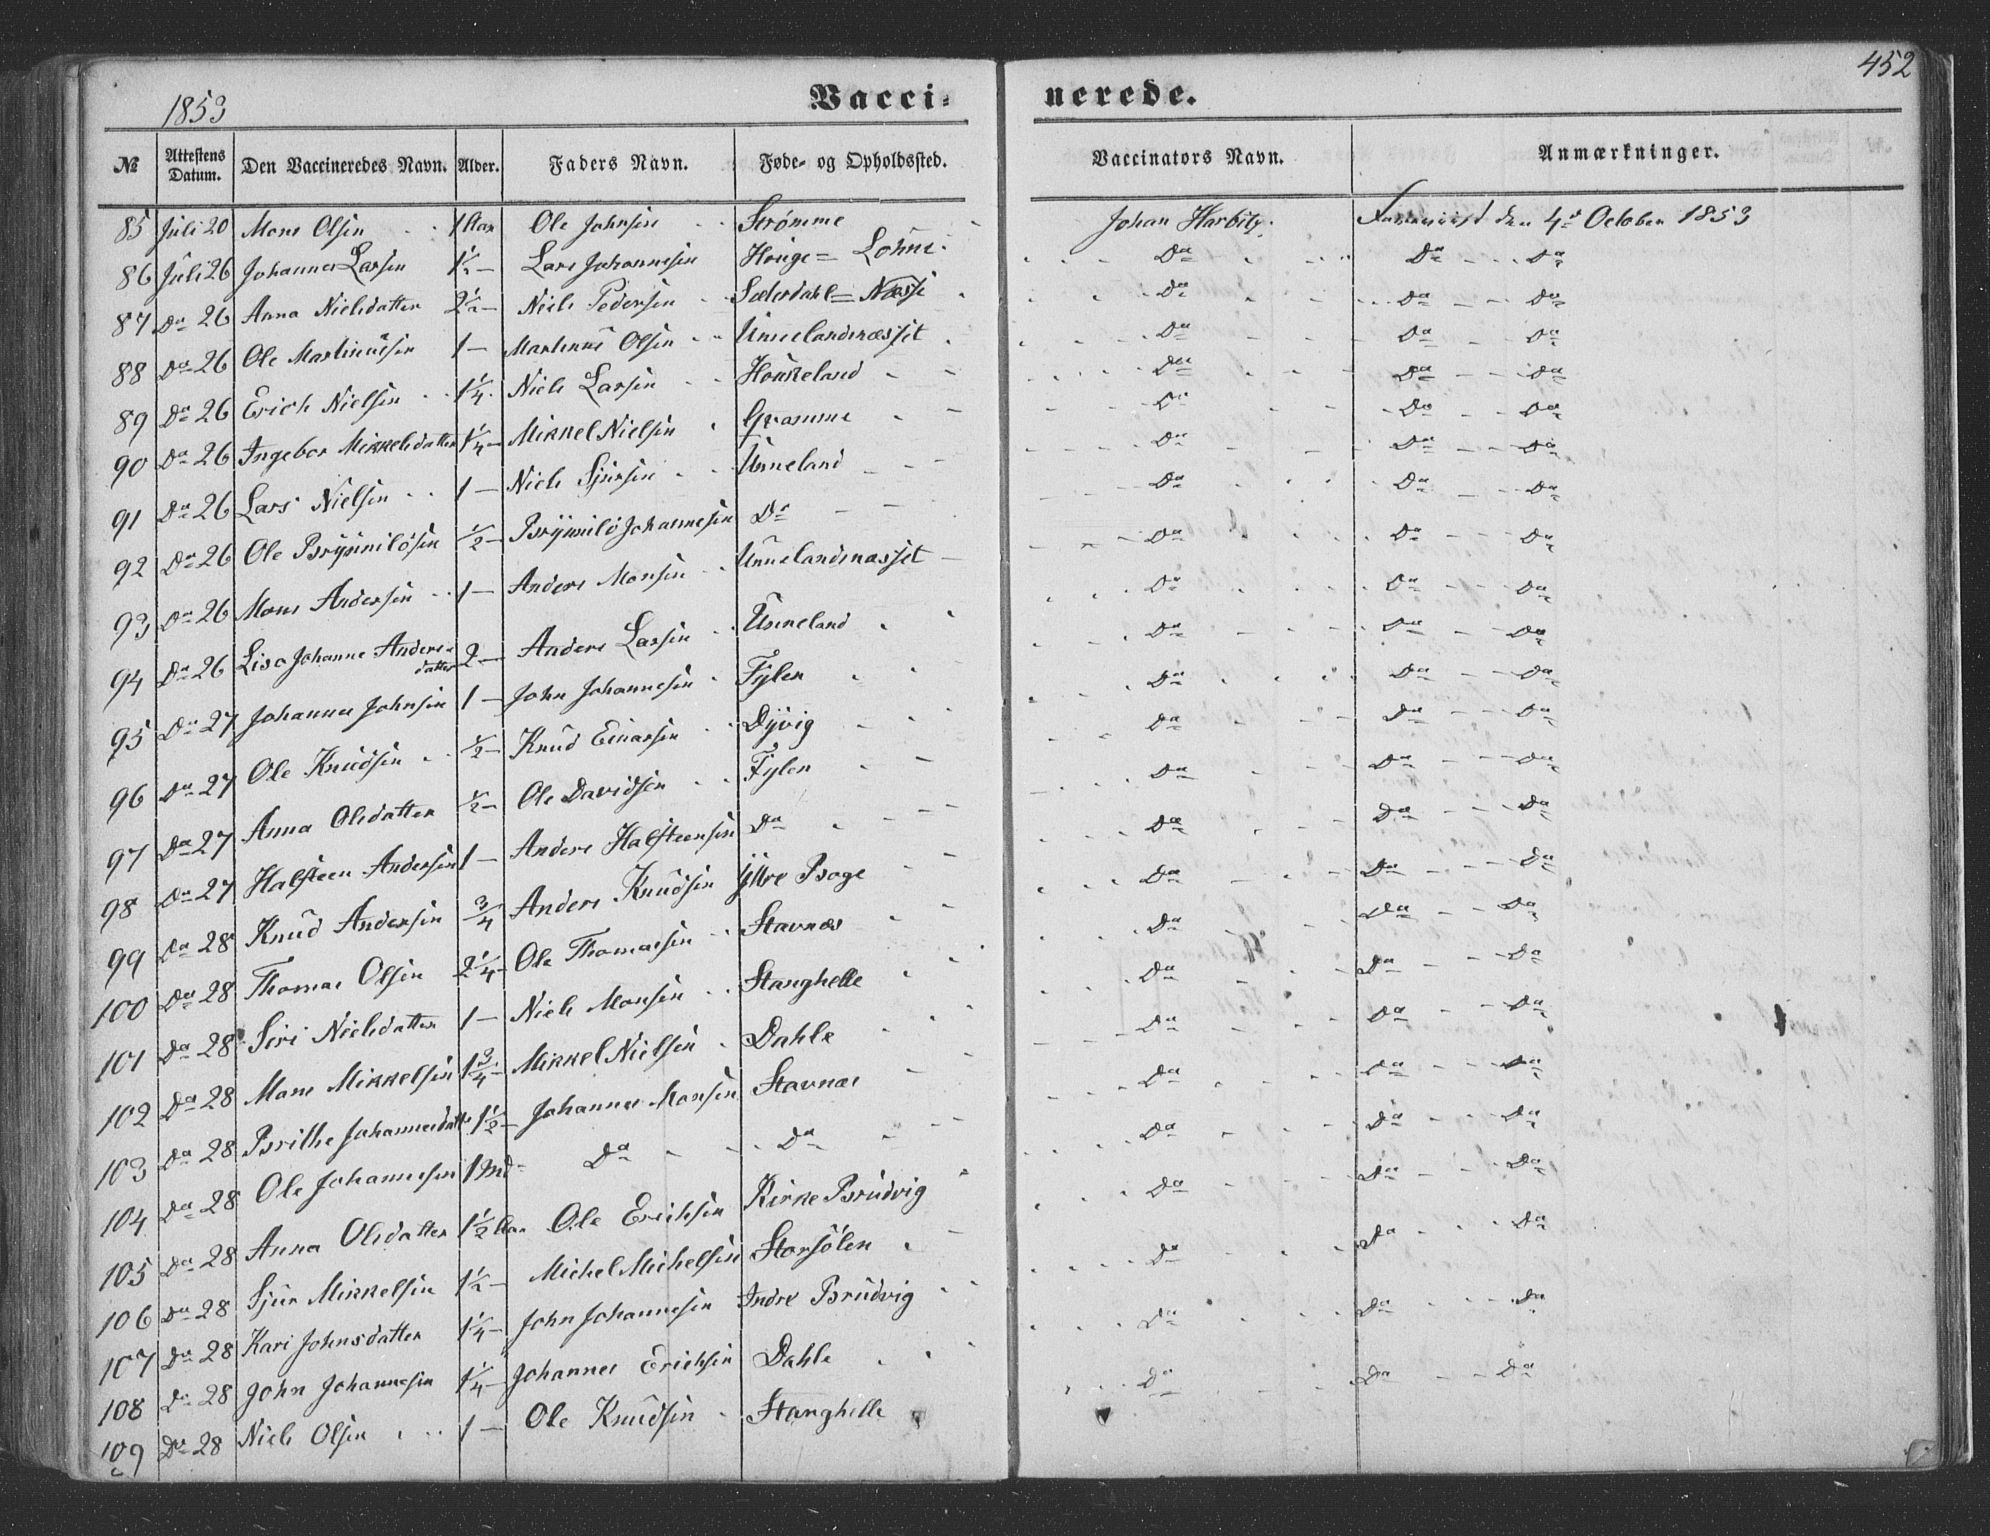 452
1853 Vaccinerede.
№ Attestens Datum. Den Vaccineredes Navn. Alder. Faders Navn. Føde- og Opholdssted. Vaccinators Navn. Anmærkninger.
85 Juli 20 Mons Olsen 1 Aar Ole Johnsen Strømme Johan Harbitz. Fremviist den 4de October 1853
86 Juli 26 Johannes Larsen 1½ — Lars Johannesen Houge = Lohne Do Do Do
87 Do 26 Anna Nielsdatter 2½ — Niels Pedersen Sæterdahl = Næsse Do Do Do
88 Do 26 Ole Martinusen 1 — Martinus Olsen Unnelandsnæsset Do Do Do
89 Do 26 Erich Nielsen 1¼ Niels Larsen Houkeland Do Do Do
90 Do 26 Ingebor Mikkelsdatter 1¼ — Mikkel Nielsen Gramme Do Do Do
91 Do 26 Lars Nielsen 1 — Niels Sjursen Unneland Do Do Do
92 Do 26 Ole Brynnildsen ½ — Brynnild Johannesen Do Do Do Do
93 Do 26 Mons Andersen 1 — Anders Monsen Unnelandsnæsset Do Do Do
94 Do 26 Lisa Johanne Anders- 2 — Anders Larsen Unneland Do Do Do
datter
95 Do 27 Johannes Johnsen 1 — John Johannesen Fylen Do Do Do
96 Do 27 Ole Knudsen ½ — Knud Einarsen Dyvig Do Do Do
97 Do 27 Anna Olsdatter ½ — Ole Davidsen Fylen Do Do Do
98 Do 27 Halsteen Andersen 1 — Anders Halsteensen Do Do Do Do
99 Do 28 Knud Andersen ¾ Anders Knudsen Yttre Boge Do Do Do
100 Do 28 Thomas Olsen 2¼ — Ole Thomasen Stavnæs Do Do Do
101 Do 28 Siri Nielsdatter 1 — Niels Monsen Stanghelle Do Do Do
102 Do 28 Mons Mikkelsen 1¾ — Mikkel Nielsen Dahle Do Do Do
103 Do 28 Brithe Johannesdatter 1½ — Johannes Monsen Stavnæs Do Do Do
104 Do 28 Ole Johannesen 1 Md Do Do Do Do Do
105 Do 28 Anna Olsdatter 1½ Aar Ole Erichsen Kirke Brudvig Do Do Do
106 Do 28 Sjur Mikkelsen 1½ — Michel Michelsen Storsølen Do Do Do
107 Do 28 Kari Johnsdatter 1¼ — John Johannesen Indre Brudvig Do Do Do
108 Do 28 John Johannesen 1¼ — Johannes Erichsen Dahle Do Do Do
109 Do 28 Niels Olsen 1 — Ole Knudsen Stanghelle Do Do Do